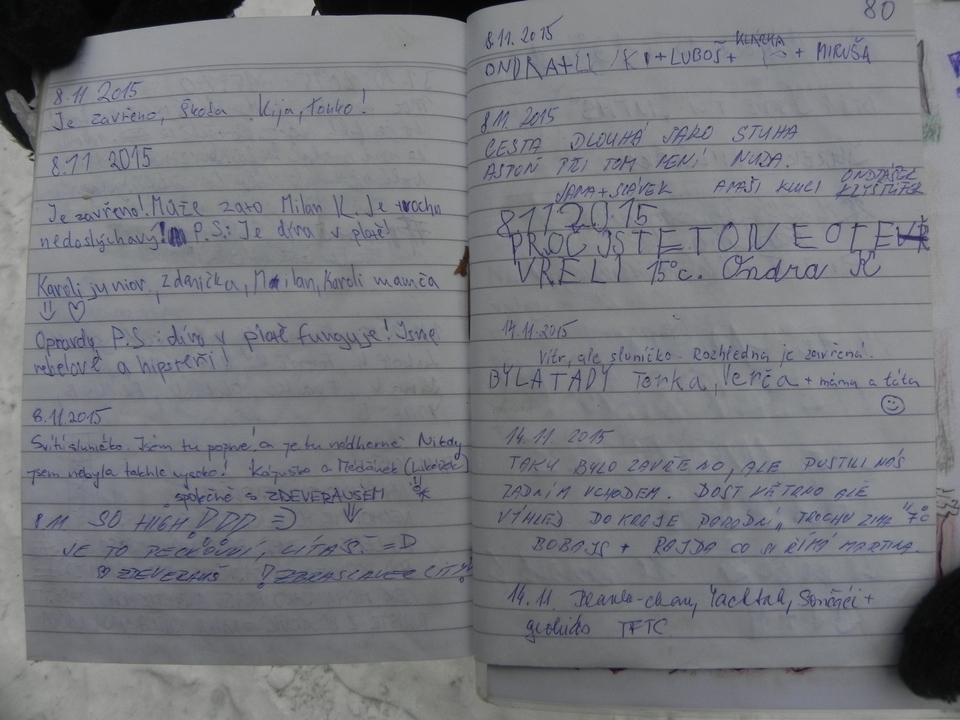 8.11 2015
Je zavřeno, škoda. Kija, Tonko!
8.11 2015
Je zavřeno! Může zato Milan K. Je trochu
nedoslýchavý! P.S.: Je díra v plotě!
Karoli junior, Zdenička, Milan, Karoli mamča
Opravdy P.S.: díra v plotě funguje! Jsme
rebelové a hipsteři!
8.11.2015
Svítí sluníčko. Jsem tu poprvé a je tu nádherně. Nikdy
jsem nebyla takhle vysoko! a Méďánek
společně s ZDEVERAUSEM
8 11 SO HIGH DDD =)
JE TO PECKOVNÍ, CÍTÁŠ =D
ZDEVERAUS ! ZBRASLAVER CITY
80
8.11.2015
ONDRA + + LUBOŠ + KLÁRKA + MIRUŠA
8.11.2015
CESTA DLOUHÁ JAKO STUHA
ASTOŇ PŘI TOM NENÍ NUDA.
JANA + SLÁVEK A NAŠI KLUCI ONDRÁŠEK KRYŠTŮFEK
8 11 20 15
PROČ JSTE TO NEOTE
VŘELI 15°C. Ondra K
14.11.2015
Vítr, ale sluníčko. Rozhledna je zavřená.
BYLA TADY Terka, Verča + máma a táta
14.11.2015
TAKY BYLO ZAVŘENO, ALE PUSTILI NÁS
ZADNÍM VCHODEM. DOST VĚTRNO ALE
VÝHLED DOKRAJE PARÁDNÍ, TROCHU ZIMA
BOBAJS + RAJDA CO SI ŘÍKÁ MARTINA.
14.11. -chan, +
TFTC